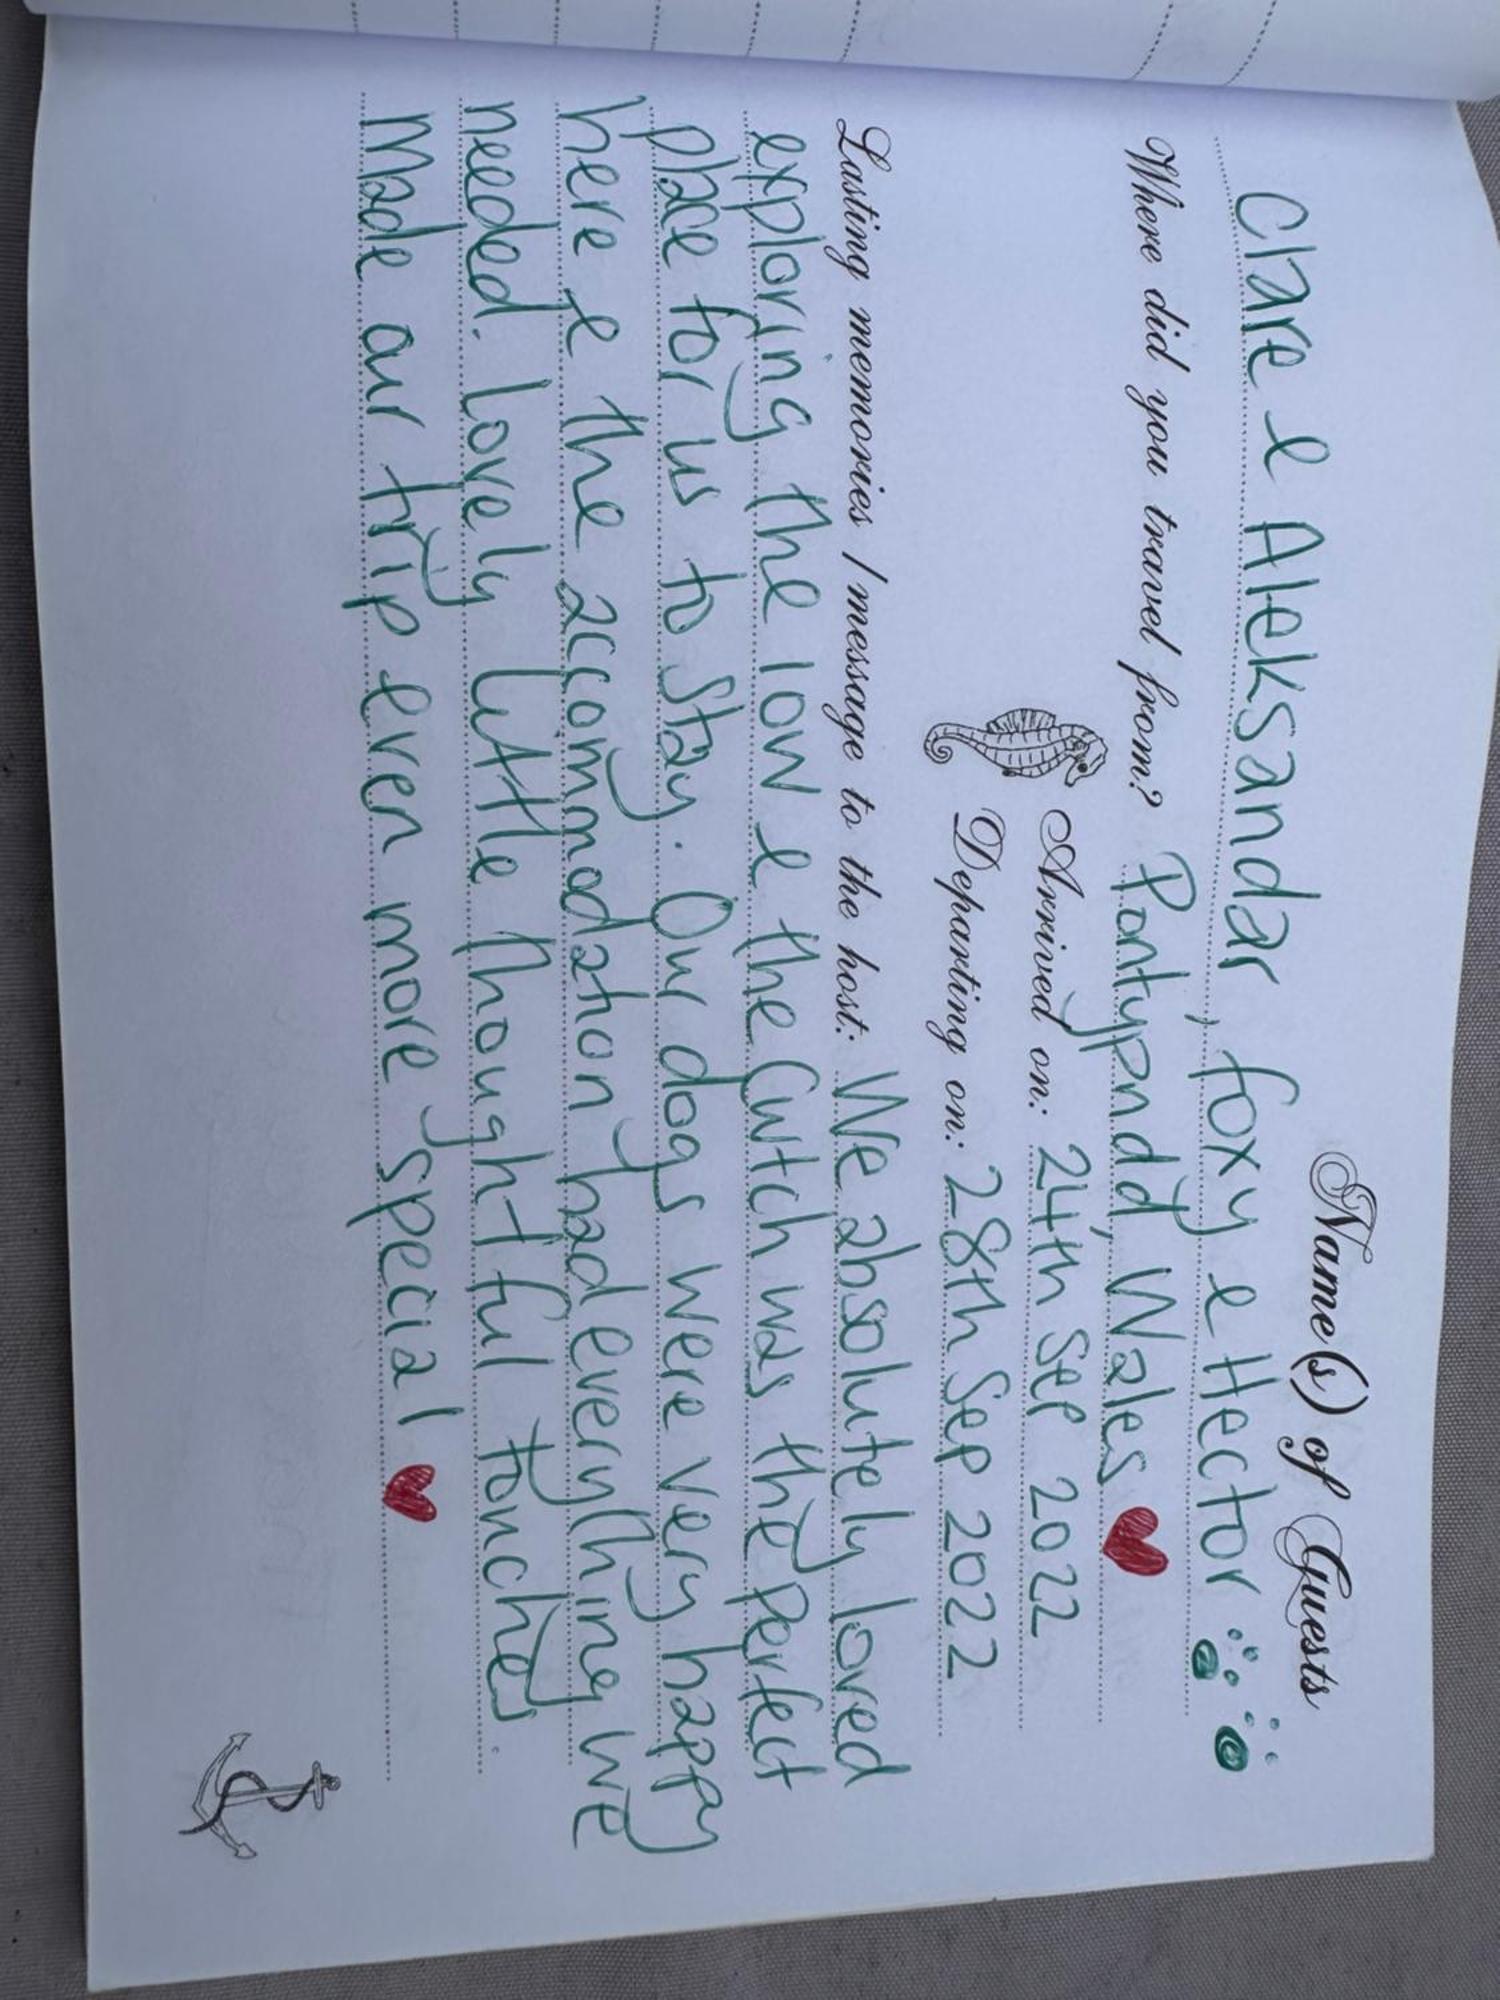 Name(s) of Guests
Clare & Aleksandar, foxy & Hector
Where did you travel from? Pontypridd, Wales
Arrived on: 24th Sep 2022
Departing on: 28th Sep 2022
Lasting memories / message to the host: We absolutely loved
exploring the low & the Cwtch was the perfect
place for us to stay. Our dogs were very happy
here & the accommodation had everything we
needed. Lovely little thoughtful touches
made our trip even more special